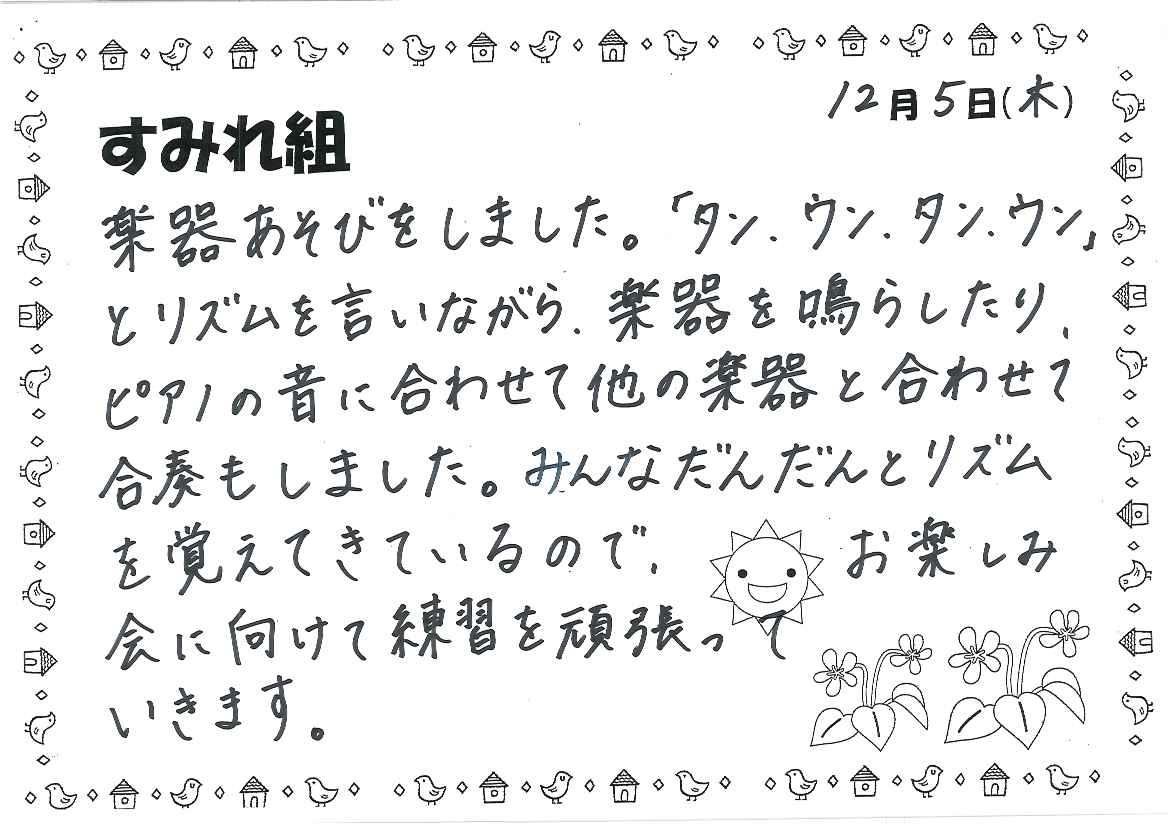 12月5日(木)
すみれ組
楽器あそびをしました。「タン、ウン、タン、ウン」
とリズムを言いながら、楽器を鳴らしたり、
ピアノの音に合わせて他の楽器と合わせて
合奏もしました。みんなだんだんとリズム
を覚えてきているので、お楽しみ
会に向けて練習を頑張って
いきます。